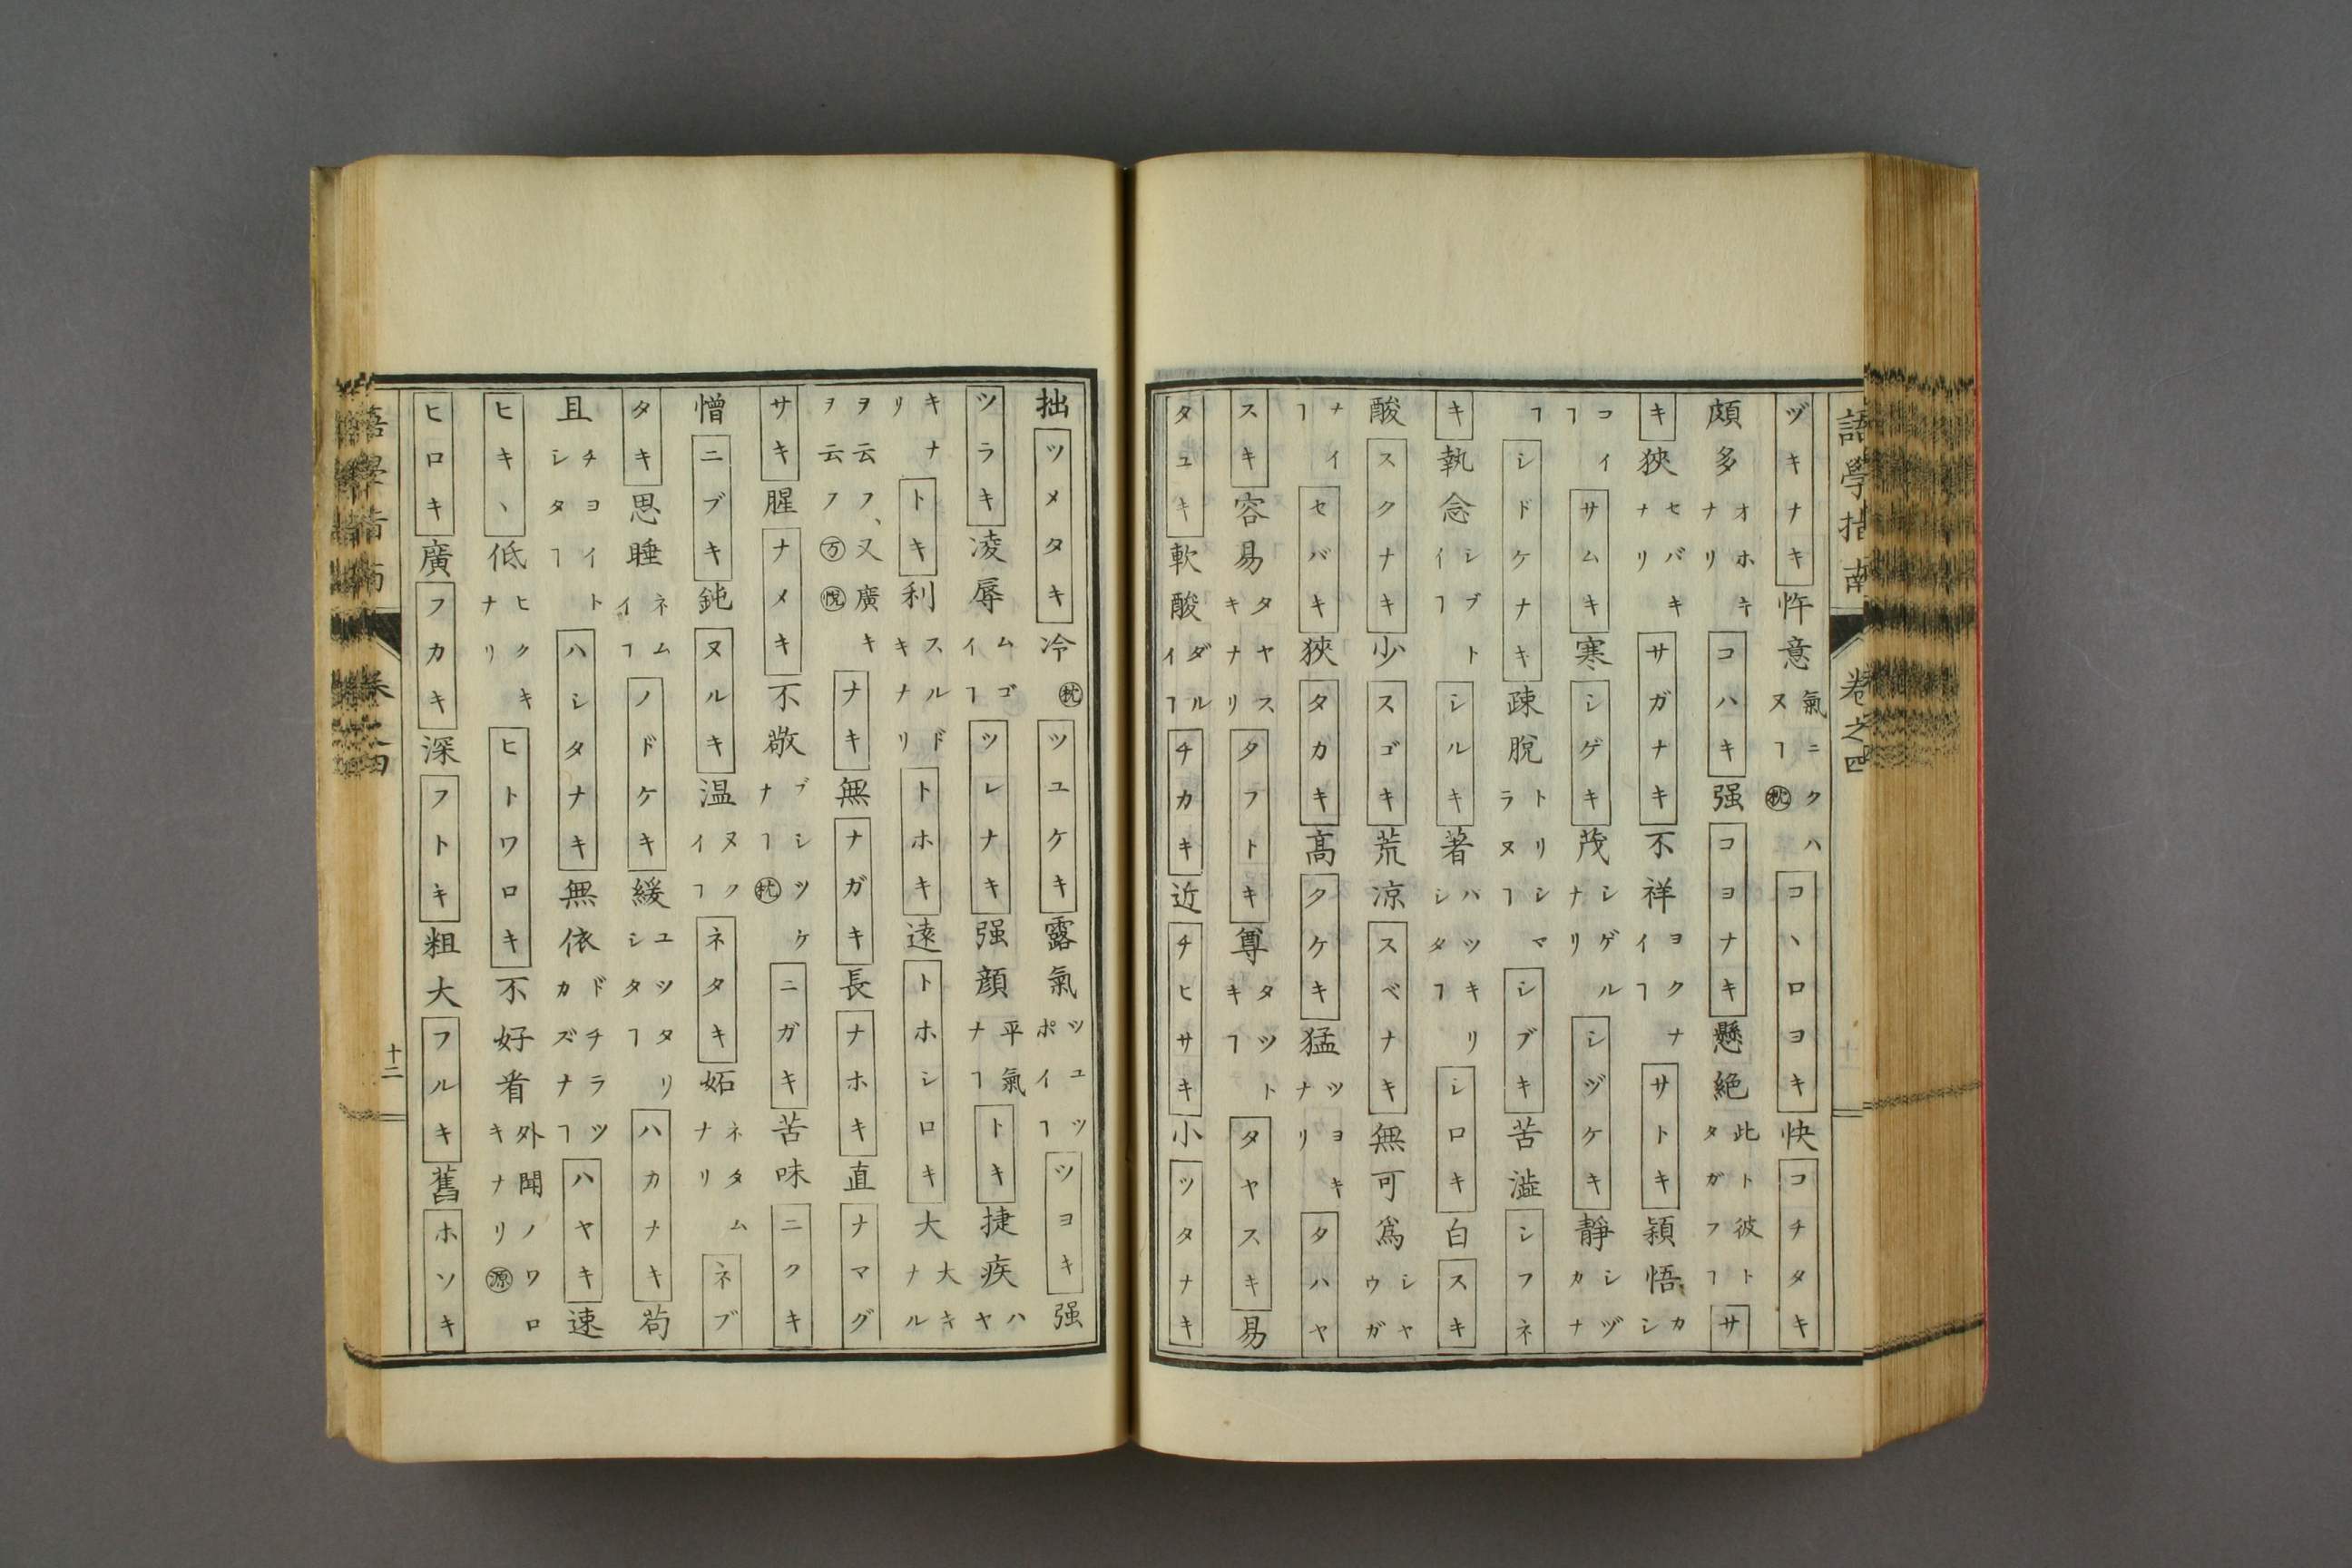 語學指南 卷之四
ヅキナキ忤意氣ニクハヌヿ㊙コヽロヨキ快コチタキ
頗多オホキナリコハキ强コヨナキ懸絶此ト彼トタガフヿサ
キ狹セバキナリサガナキ不祥ヨクナイヿサトキ穎悟カシ
コイヿサムキ寒シゲキ茂シゲルナリシヅケキ靜シヅカナ
ヿシドケナキ疎脫トリシマラヌヿシブキ苦澁シフネ
キ執念シブトイヿシルキ著ハツキリシタヿシロキ白スキ
酸スクナキ少スゴキ荒凉スベナキ無可爲シヤウガ
ナイヿセバキ狹タカキ高クケキ猛ツヨキナリタハヤ
スキ容易タヤスキナリタフトキ尊タツトキヿタヤスキ易
タユキ軟酸ダルイヿチカキ近チヒサキ小ツタナキ
拙ツメタキ冷枕ツユケキ露氣ツユツポイヿツヨキ强
ツラキ凌辱ムゴイヿツレナキ强顔平氣ナヿトキ捷疾ハヤ
キナリトキ利スルドキナリトホキ遠トホシロキ大大キナル
ヲ云フ、又廣キヲ云フ万ナキ無ナガキ長ナホキ直ナマグ
サキ腥ナメキ不敬ブシツケナヿ枕ニガキ苦味ニクキ
憎ニブキ鈍ヌルキ温ヌクイヿネタキ妬ネタムナリネブ
タキ思睡ネムイヿノドケキ緩ユツタリシタヿハカナキ苟
且チヨイトシタヿハシタナキ無依ドチラツカズナヿハヤキ速
ヒキヽ低ヒクキナリヒトワロキ不好看外聞ノワロキナリ源
ヒロキ廣フカキ深フトキ粗大フルキ舊ホソキ
語學指南 卷之四 十二